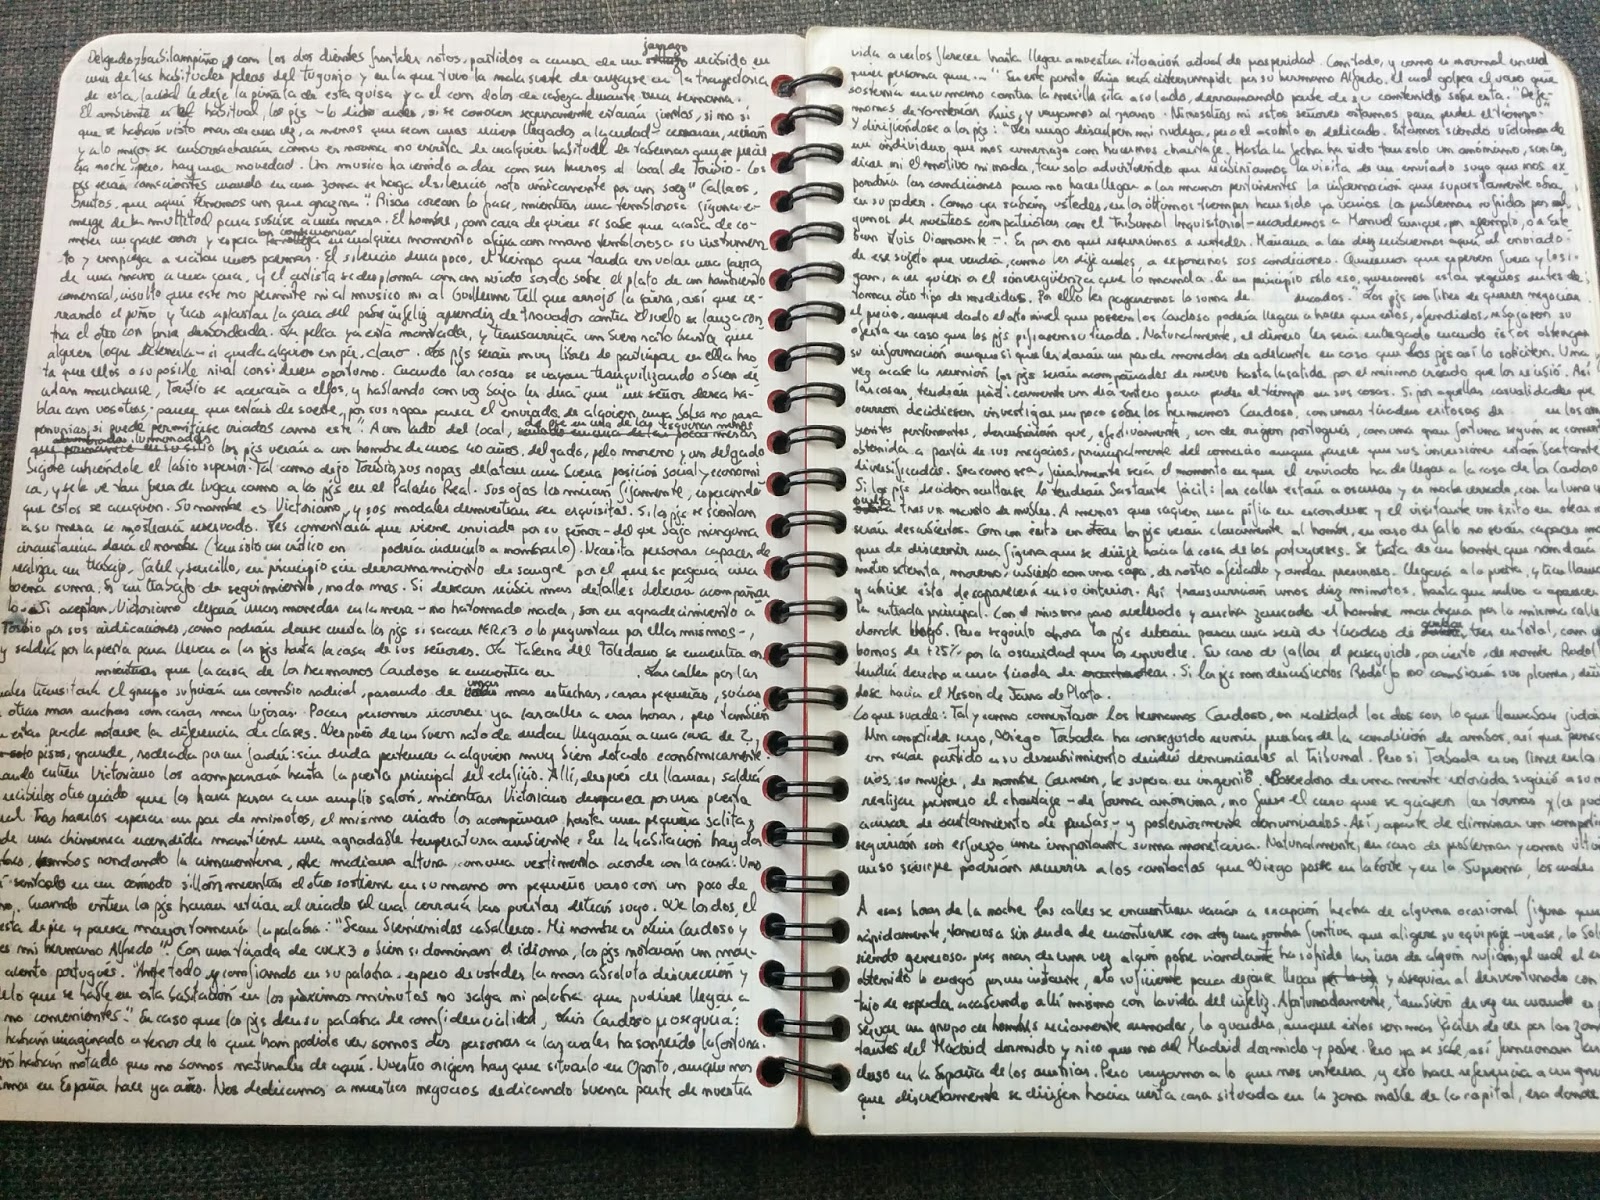 Delgado y barbilampiño, con los dos dientes frontales rotos, partidos a causa de un jarrazo recibido en
una de las habituales peleas del tugurio y en la que tuvo la mala suerte de cruzarse en la trayectoria
de esta, la cual le dejo la piñata de esta guisa y a el con dolor de cabeza durante una semana.
El ambiente es el habitual, los pjs - lo dicho antes, si se conocen seguramente estarán juntos, si no si
que se habrán visto mas de una vez, a menos que sean unos recien llegados a la ciudad -
y a lo mejor se emborracharán como es norma no escrita de cualquier habitual de tabernas que se precie
Esa noche, pero, hay una novedad. Un musico ha venido a dar con sus huesos al local de Toribio. Los
pjs serán conscientes cuando en una zona se haga el silencio roto unicamente por un soez "Callaos,
brutos, que aquí tenemos un que grazna." Risas corean la frase, mientras una temblorosa figura e-
merge de la multitud para subirse a una mesa. El hombre, con cara de quien se sabe que acaba de co-
meter un grave error y espera las consecuencias en cualquier momento aferra con mano temblorosa su instrumen
to y empieza a recitar unos poemas. El silencio dura poco, el tiempo que tarda en volar una jarra,
de una mano a una cara, y el artista se desploma con un ruido sordo sobre el plato de un hambriento
comensal, insulto que este no permite ni al musico ni al Guillermo Tell que arrojó la jarra, así que ce-
rrando el puño y tras aplastar la cara del pobre infeliz aprendiz de trovador contra el suelo se lanza con
tra el otro con furia desbordada. La pelea ya está montada, y transcurrirá un buen rato hasta que
alguien logre detenerla - si queda alguien en pie, claro. Los pjs serán muy libres de participar en ella has
ta que ellos o su posible rival consideren oportuno. Cuando las cosas se vayan tranquilizando o bien de
cidan marcharse, Toribio se acercará a ellos, y hablando con voz baja les dirá que "un señor desea ha-
blar con vosotros, parece que estais de suerte, por sus ropas parece el enviado de alguien cuya bolsa no pasa
penurias, si puede permitirse criados como este". A un lado del local,
los pjs verán a un hombre de unos 40 años, delgado, pelo moreno y un delgado
bigote cubriendole el labio superior. Tal como dijo Toribio, sus ropas delatan una buena posicion social y economi
ca, y se le ve tan fuera de lugar como a los pjs en el Palacio Real. Sus ojos los miran fijamente, esperando
que estos se acerquen. Su nombre es Victoriano, y sus modales demuestran ser exquisitos. Si los pjs se sientan
a su mesa se mostrará reservado. Les comentará que viene enviado por su señor - del que bajo ninguna
circunstancia dará el nombre (tan solo un critico en podría inducirlo a nombrarlo). Necesita personas capaces de
realizar un trabajo, fácil y sencillo, en principio sin derramamiento de sangre por el que se pagará una
buena suma. Es un trabajo de seguimiento, nada mas. Si desean recibir mas detalles deberán acompañar
lo. Si aceptan, Victoriano dejará unas monedas en la mesa - no ha tomado nada, son en agradecimiento a
Toribio por sus indicaciones, como podrán darse cuenta los pjs si sacan PERx3 o lo preguntan por ellos mismos -,
y saldrá por la puerta para llevar a los pjs hasta la casa de sus señores. La Taberna del Toledano se encuentra en
mientras que la casa de los hermanos Cardoso se encuentra en . Las calles por las
cuales transitará el grupo sufrirán un cambio radical, pasando de unas mas estrechas, casas pequeñas, sucias
a otras mas anchas con casas mas lujosas. Pocas personas recorren ya las calles a esas horas, pero también
en estas puede notarse la diferencia de clases. Después de un buen rato de andar llegarán a una casa de 2
pisos, grande, rodeada por un jardín: sin duda pertenece a alguien muy bien dotado económicamente.
Cuando entren Victoriano los acompañará hasta la puerta principal del edificio. Allí, después de llamar, saldrá
a recibirlos otro criado que los hara pasar a un amplio salón, mientras Victoriano desaparece por una puerta
Tras hacerlos esperar un par de minutos, el mismo criado los acompañara hasta una pequeña salita,
de una chimenea encendida mantiene una agradable temperatura ambiente. En la habitacion hay dos
hombres rondando la cincuentena, de mediana altura y con una vestimenta acorde con la casa. Uno
sentado en un cómodo sillón mientras el otro sostiene en su mano un pequeño vaso con un poco de
Cuando entren los pjs harán retirar al criado el cual cerrará las puertas detrás suyo. De los dos, el
esta de pie y parece mayor tomará la palabra: "Sean bienvenidos caballeros. Mi nombre es Luis Cardoso y
es mi hermano Alfredo". Con una tirada de CULx3 o bien si dominan el idioma, los pjs notarán un mar-
acento portugués. "Ante todo, y confiando en su palabra, espero de ustedes la mas absoluta discreción y
de lo que se hable en esta habitación en los próximos minutos no salga ni palabra que pudiese llegar a
no convenientes." En caso que los pjs den su palabra de confidencialidad, Luis Cardoso proseguirá:
habrán imaginado a tenor de lo que han podido ver, somos dos personas a las cuales ha sonreído la fortuna.
habrán notado que no somos naturales de aquí. Nuestro origen hay que situarlo en Oporto, aunque nos
en España hace ya años. Nos dedicamos a nuestros negocios dedicando buena parte de nuestra
vida a verlos florecer hasta llegar a nuestra situación actual de prosperidad. Con todo, y como es normal en cual
quier persona que..." En este punto Luis será interrumpido por su hermano Alfredo, el cual golpea el vaso que
sostenía en su mano contra la mesilla sita a su lado, derramando parte de su contenido sobre esta. "Deje-
monos de tonterías Luis, y vayamos al grano. Ni nosotros ni estos señores estamos para perder el tiempo."
Y dirijiéndose a los pjs: "Les ruego disculpen mi rudeza, pero el asunto es delicado. Estamos siendo víctimas de
un individuo, que nos amenaza con hacernos chantaje. Hasta la fecha ha sido tan solo un anónimo, sin in-
dicar ni el motivo ni nada, tan solo advirtiendo que recibiríamos la visita de un enviado suyo que nos ex
pondría las condiciones para no hacer llegar a las manos pertinentes la información que supuestamente obra
en su poder. Como ya sabrán ustedes, en los últimos tiempos han sido ya varios los problemas sufridos por al-
gunos de nuestros compatriotas con el Tribunal Inquisitorial - recordemos a Manuel Enrique, por ejemplo, o a Este
ban Luis Diamante -. Es por eso que recurrimos a ustedes. Mañana a las diez recibiremos aquí al enviado
de ese sujeto que vendrá, como les dije antes, a exponernos sus condiciones. Queremos que esperen fuera y lo si-
gan, a ver quien es el sinvergüenza que lo manda. En un principio sólo eso, queremos estar seguros antes de
tomar otro tipo de medidas. Por ello les pagaremos la suma de ducados." Los pjs son libres de querer negociar
el precio, aunque dado el alto nivel que poseen los Cardoso podría llegar a hacer que estos, ofendidos, rebajasen su
oferta en caso que los pjs pifiasen su tirada. Naturalmente, el dinero les será entregado cuando éstos obtengan
su información aunque si que les darán un par de monedas de adelanto en caso que los pjs así lo soliciten. Una
vez acabe la reunión los pjs serán acompañados de nuevo hasta la salida por el mismo criado que los recibió. Así
las cosas, tendrán prácticamente un día entero para perder el tiempo en sus cosas. Si por aquellas casualidades que
ocurren decidiesen investigar un poco sobre los hermanos Cardoso, con unas tiradas exitosas de en los am
bientes pertinentes, descubrirían que, efectivamente, son de origen portugués, con una gran fortuna según se comenta
obtenida a partir de sus negocios, principalmente del comercio aunque parece que sus inversiones están bastante
diversificadas. Sea como sea, finalmente será el momento en que el enviado ha de llegar a la casa de los Cardoso
Si los pjs deciden ocultarse lo tendrán bastante fácil: las calles están a oscuras y es noche cerrada, con la luna
oculta tras un manto de nubes. A menos que saquen una pifia en esconderse y el visitante un éxito en otear no
serán descubiertos. Con un éxito en otear los pjs verán claramente al hombre, en caso de fallo no serán capaces mas
que de discernir una figura que se dirije hacia la casa de los portugueses. Se trata de un hombre que rondará
metro setenta, moreno, cubierto con una capa, de rostro afeitado y andar presuroso. Llegará a la puerta, y tras llamar
y abrirse esta desaparecerá en su interior. Así transcurrirán unos diez minutos, hasta que vuelva a aparecer
la entrada principal. Con el mismo paso acelerado y ancha zancada el hombre marchará por la misma calle
donde llegó. Para seguirlo ahora los pjs deberán pasar una serie de tiradas de , tres en total, con un
bonus de +25% por la oscuridad que los envuelve. En caso de fallar el perseguido, por cierto, de nombre Rodol
tendrá derecho a una tirada de . Si los pjs son descubiertos Rodolfo no cambiará sus planes,
dose hacia el Meson de Jarra de Plata.
Lo que sucede: Tal y como comentaron los hermanos Cardoso, en realidad los dos son lo que llamaban judai
Un competidor suyo, Diego Taboada ha conseguido reunir pruebas de la condición de ambos, así que
en sacar partido a su descubrimiento decidió denunciarlos al Tribunal. Pero si Taboada es un lince en los
cios, su mujer, de nombre Carmen, le supera en ingenio. Poseedora de una mente retorcida sugirió a su
realizar primero el chantaje - de forma anónima, no fuese el caso que se girasen las tornas y los
acusar de ocultamiento de pruebas - y posteriormente denunciarlos. Así, aparte de eliminar un competi
seguirían sin esfuerzo una importante suma monetaria. Naturalmente, en caso de problemas y como últi
curso siempre podrían recurrir a los contactos que Diego posee en la Corte y en la Suprema, los cuales
A esas horas de la noche las calles se encuentran vacías a excepción hecha de alguna ocasional figura que
rápidamente, temerosa sin duda de encontrarse con otra sombra furtiva que aligere su equipaje - vease, la bol
siendo generoso, pues mas de una vez algún pobre viandante ha sufrido las iras de algún rufián, al cual el
obtenido lo enojó por un instante, lo suficiente para dejarse llevar y obsequiar al desventurado con
tajo de espada, acabando allí mismo con la vida del infeliz. Afortunadamente, también de vez en cuando es
servar un grupo de hombres reciamente armados, la guardia, aunque éstos son mas fáciles de ver por las zonas
tantes del Madrid dormido y rico que no del Madrid dormido y pobre. Pero ya se sabe, así funcionan las
cosas en la España de los austrias. Pero vayamos a lo que nos interesa, y eso hace referencia a un gru
que discretamente se dirijen hacia cierta casa situada en la zona noble de la capital, era donde